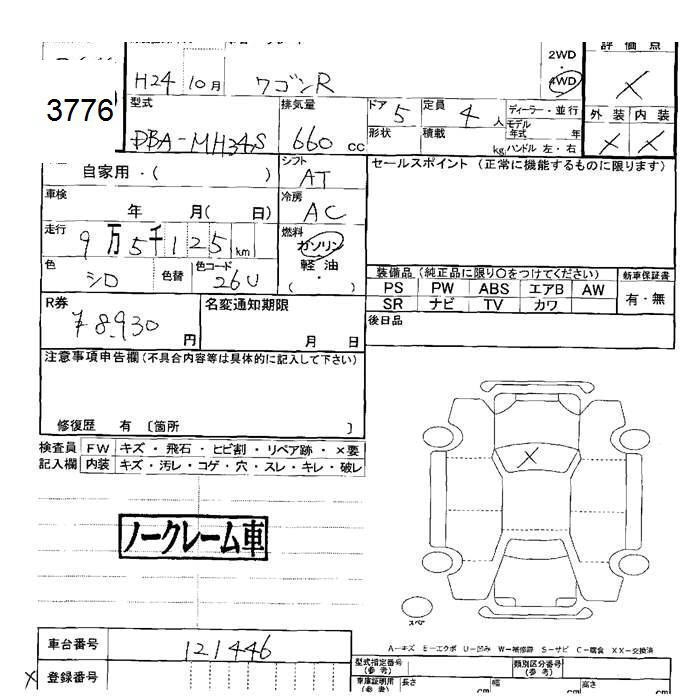 評 価 点
2WD
・
4WD
×
H24 10月 ワゴンR
3776
型式 排気量 ドア 5 定員 4 人 ディーラー・並行
モデル年式 年
外 装 内 装
DBA-MH34S 660 cc 形状 積載 kg ハンドル 左・右
× ×
自家用・( )
シフト AT
セールスポイント (正常に機能するものに限ります)
車検 年 月( 日)
冷房 AC
走行 9万5千125 km
燃料 ガソリン
軽 油
( ・ )
色 シロ 色替 色コード 26U
装備品(純正品に限り○をつけてください) 新車保証書
PS PW ABS エアB AW 有・無
SR ナビ TV カワ
R券 ¥8,930 円
名変通知期限
月 日
後日品
注意事項申告欄(不具合内容等は具体的に記入して下さい)
修復歴 有 〔箇所 〕
検査員 FW キズ・飛石・ヒビ割・リペア跡・×要
記入欄 内装 キズ・汚レ・コゲ・穴・スレ・キレ・破レ
×
ノークレーム車
スペア
A－キズ E－エクボ U－凹み W－補修跡 S－サビ C－腐食 XX－交換済
車台番号 121446
型式指定番号(参考) 類別区分番号(参考)
× 登録番号
車庫証明用(参考) 長さ cm 幅 cm 高さ cm